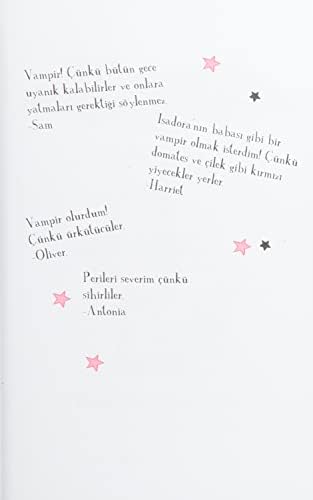 Vampir! Çünkü bütün gece
uyanık kalabilirler ve onlara
yatmaları gerektiği söylenmez.
-Sam
Isadora'nın babası gibi bir
vampir olmak isterdim! Çünkü
domates ve çilek gibi kırmızı
yiyecekler yerler.
-Harriet
Vampir olurdum!
Çünkü ürkütücüler.
-Oliver.
Perileri severim çünkü
sihirliler.
-Antonia